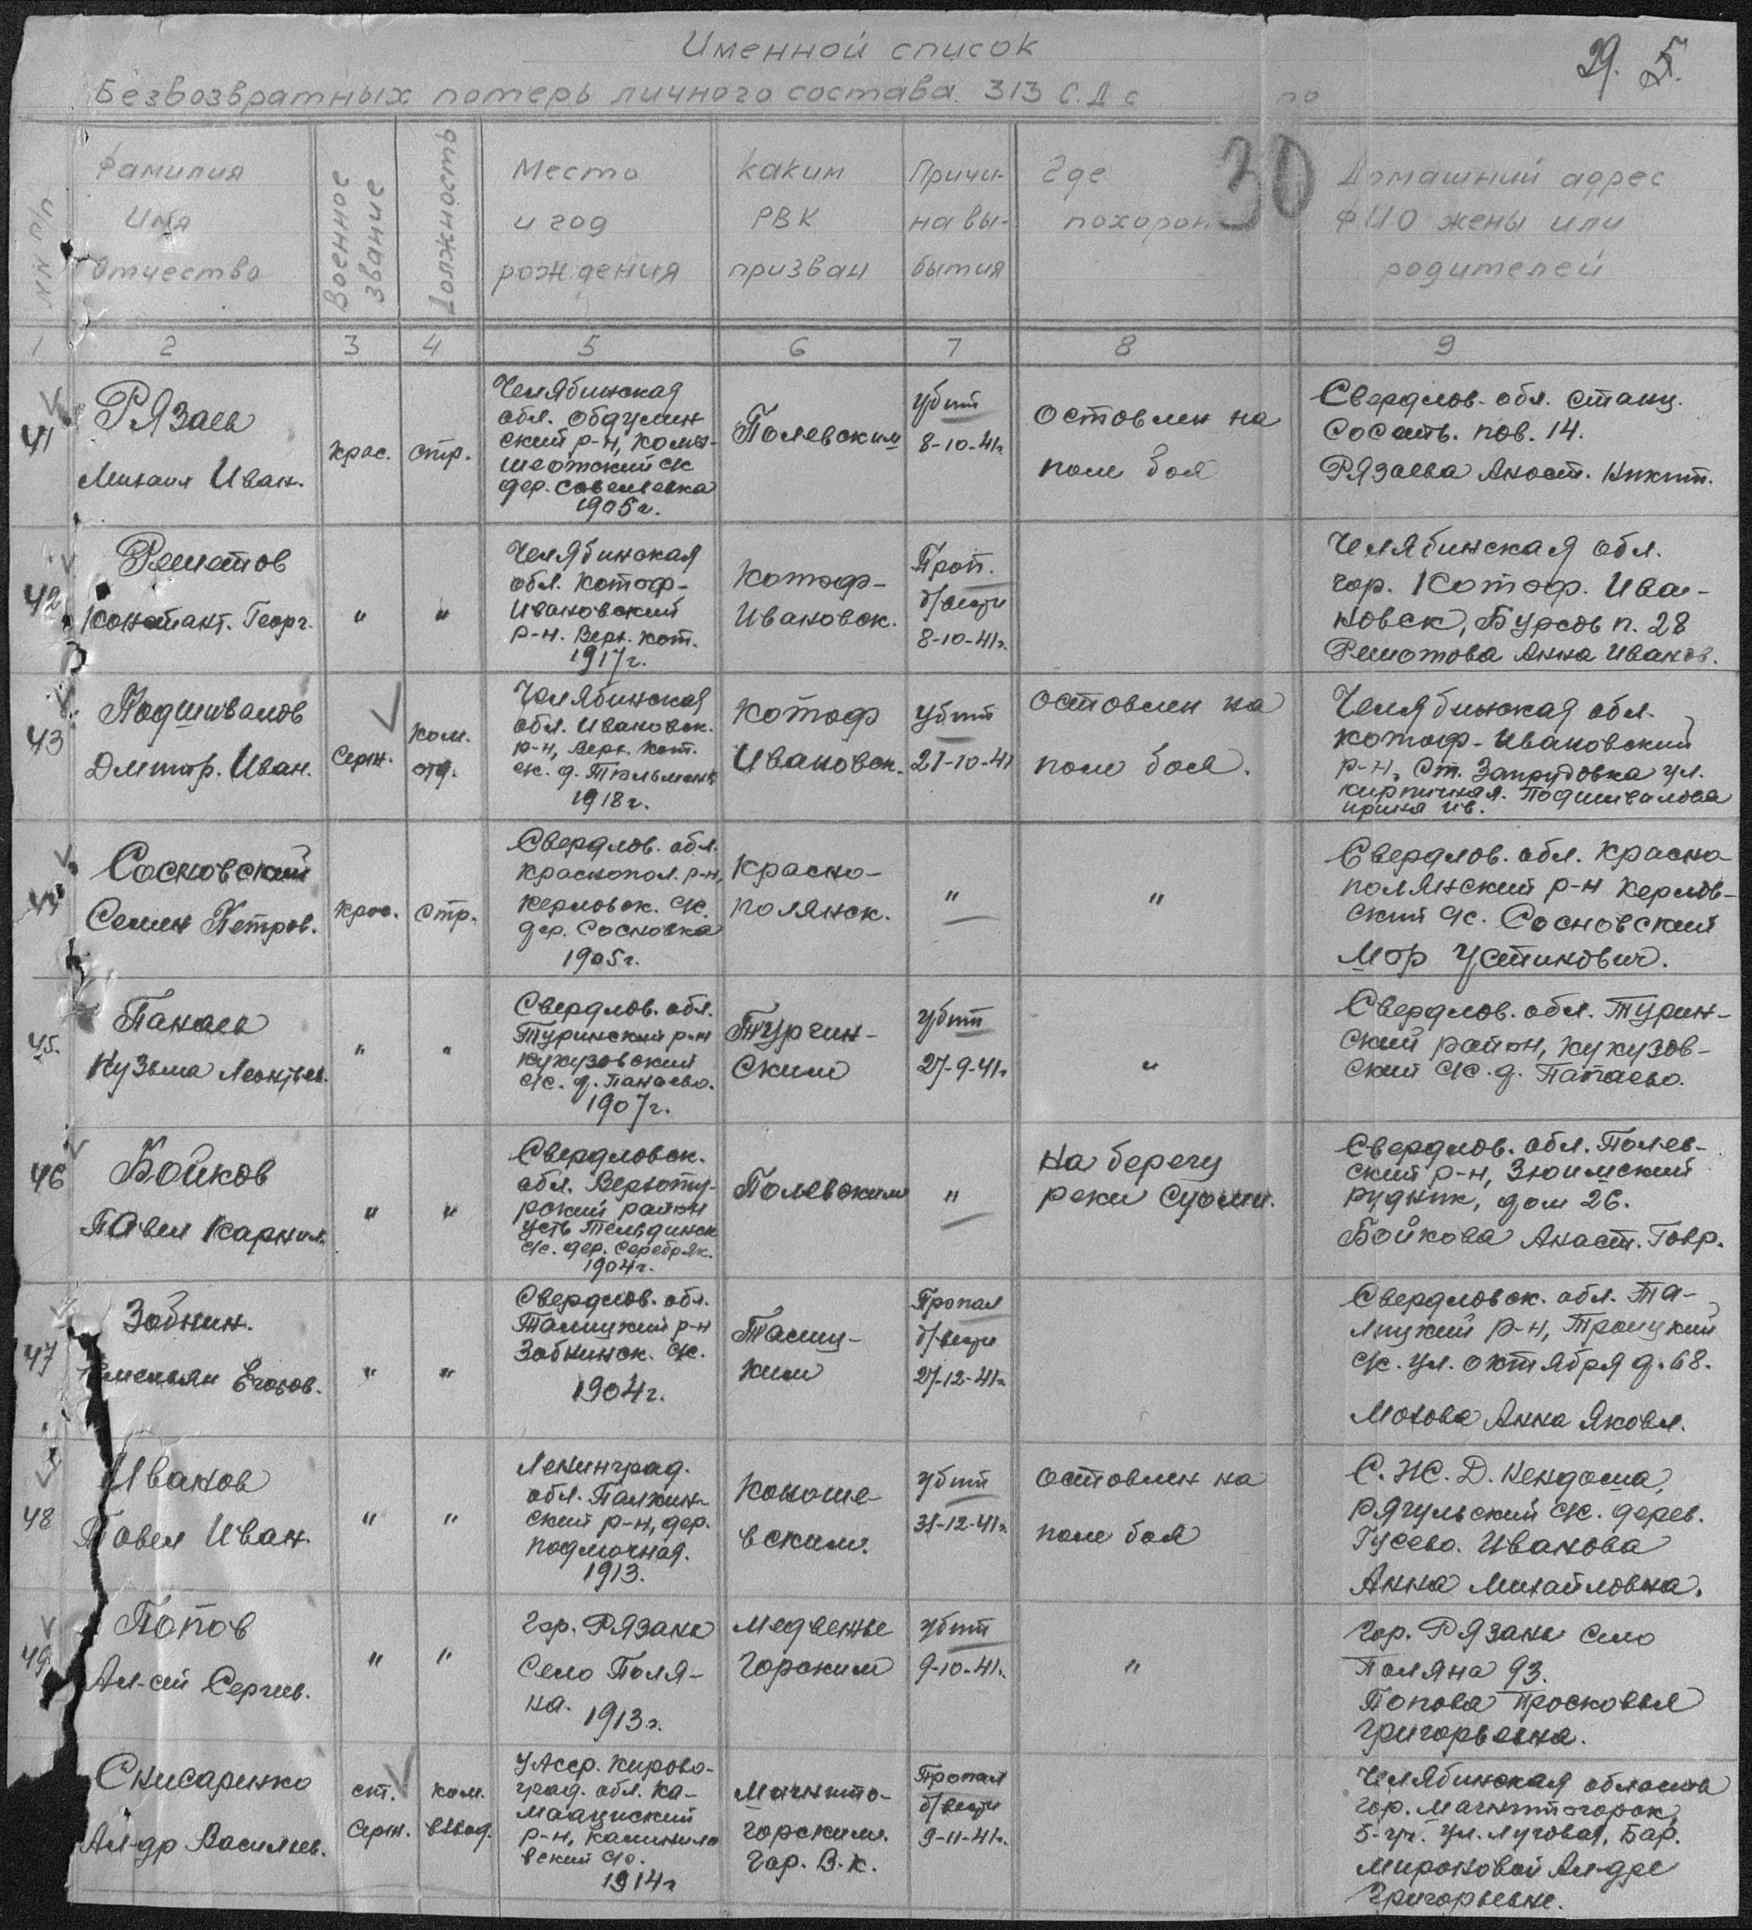 Именной список
29. 5.
Безвозвратных потерь личного состава 313 С.Д с по
30
NN п/п
Фамилия
Имя
Отчество
Военное
звание
Должность
Место
и год
рождения
Каким
РВК
призван
Причи-
на вы-
бытия
Где
похорон
Домашний адрес
ФИО жены или
родителей
1 2 3 4 5 6 7 8 9
41
Рязаев
Михаил Иван.
крас.
стр.
Челябинская
обл.
ский р-н,
с/к
дер. Савельевка
1905 г.
Полевским
убит
8-10-41г
остовлен на
поле боя
Свердлов. обл. станц.
пов. 14.
Рязаева Анаст. Никит.
42
Решетов
Констант. Георг.
"
"
Челябинская
обл. Котоф-
Ивановский
р-н. Верх. кат.
1917 г.
Котоф-
Ивановск.
Проп.
б/вести
8-10-41г.
Челябинская обл.
гор. Котоф. Ива-
новск, Бурсов п. 28
Решотова Анна Иванов.
43
Подшивалов
Дмитр. Иван.
Серж.
ком.
отд.
Челябинская
обл. Ивановск.
р-н, Верх. Кат.
с/к. д.
1918 г.
Котоф
Ивановск.
убит
21-10-41
остовлен на
поле боя.
Челябинская обл.
котоф-Ивановский
р-н, ст. Запрудовка ул.
кирпичная. Подшивалова
ирина ив.
44
Сосновский
Семен Петров.
крас.
стр.
Свердлов. обл.
Краснопол. р-н,
Керловск. с/к.
дер. Сосновка
1905 г.
Красно-
полянск.
"
"
Свердлов. обл. Красно
полянский р-н Керлов-
ский с/с. Сосновский
Мар Устинович.
45.
Панаев
Кузьма Леонтьев.
"
"
Свердлов. обл.
Туринский р-н
кукузовский
с/с. д. Панаево.
1907 г.
Турин-
ским
убит
27-9-41г
"
Свердлов. обл. Турин-
ский район, кукузов-
ский с/с. д. Панаево.
46
Бойков
Павел Карнил.
"
"
Свердловск.
обл. Верхоту-
рский район
усть Тельдинск
с/с. дер. Серебряк.
1904г.
Полевским
"
На берегу
реки Суоми.
Свердлов. обл. Полев-
ский р-н, Зюимский
рудник, дом 26.
Бойкова Анаст. Гавр.
47
Забнин.
Емельян Егоров.
"
"
Свердлов. обл.
Талицкий р-н
Забнинск. с/с.
1904 г.
Талиц-
ким
Пропал
б/вести
27-12-41г
Свердловск. обл. Та-
лицкий р-н, Троицкий
с/с. ул. октября д. 68.
Мохова Анна Яковл.
48
Иванов
Павел Иван.
"
"
Ленинград.
обл. Палкин-
ский р-н, дер.
Подмочная.
1913.
Коноше-
вским.
убит
31-12-41г
остовлен на
поле боя
С. Ж. Д. Нендома,
Рягульский с/с. дерев.
Гусево. Иванова
Анна Михайловна.
49
Попов
Ал-сей Сергеев.
"
"
Гор. Рязань
Село Поля-
на. 1913 г.
Медвежье
горским
убит
9-10-41г.
"
Гор. Рязань Село
Поляна 93.
Попова Просковья
григорьевна.
Снисаренко
Ал-др Васильев.
ст.
Серж.
ком.
взвод.
УАсср. Кирово-
град. обл. Ка-
р-н, калинино
вский с/с.
1914г
Магнито-
горским.
Гор. В. к.
Пропал
б/вести
9-11-41г.
Челябинская область
гор. Магнитогорск,
5-уч. ул. луговая, Бар.
Мироновой Ал-дре
Григорьевне.